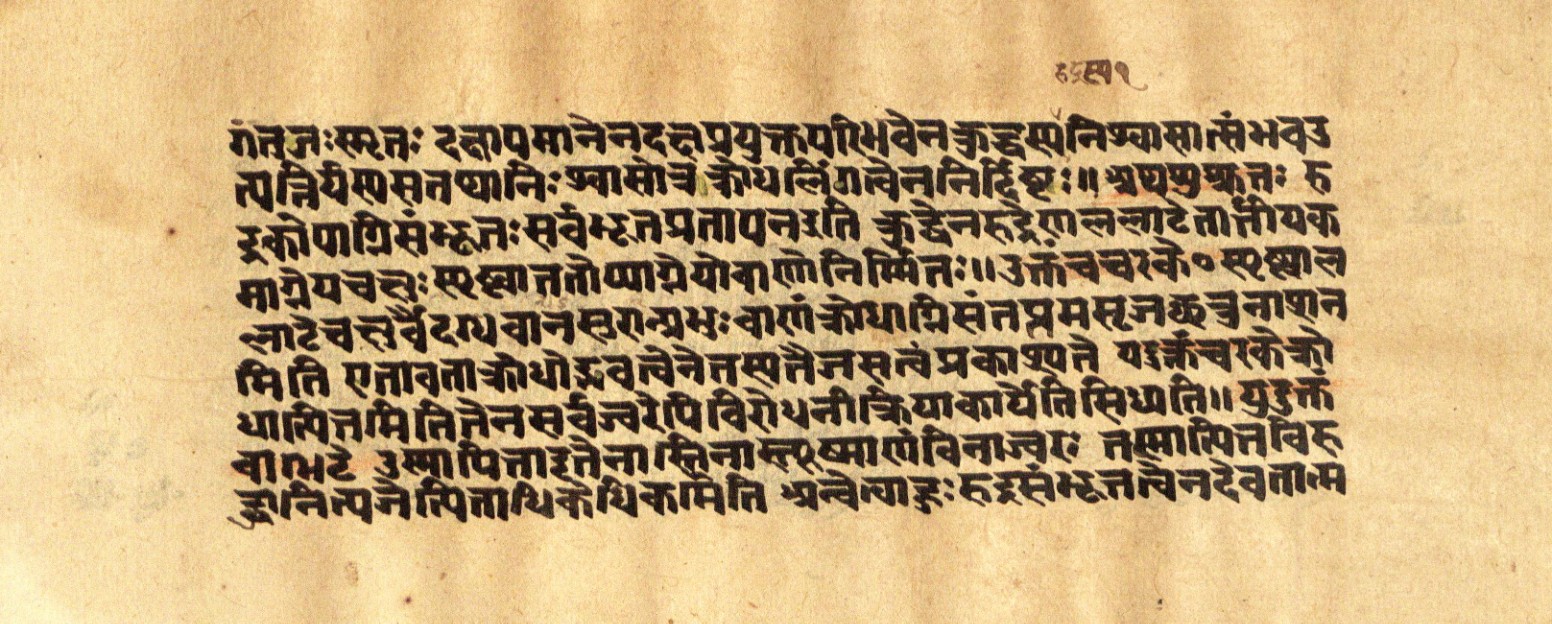 रुद्रस्य १
गंतुजः स्मृतः दक्षापमानेनदक्षप्रयुक्तपरिभवेनक्रुद्धस्यनिश्वासात्संभवउ
त्पत्तिर्यस्यसतथानिःश्वासोत्र क्रोधलिंगत्वेननिर्दिष्टः॥ अथसुश्रुतः रु
द्रकोपाग्निसंभूतः सर्वभूतप्रतापनइति क्रुद्धेनरुद्रेणललाटेतार्त्तीयक
माग्नेयचक्षुः स्पृष्ट्वाततोप्याग्नेयोबाणोनिर्म्मितः॥उक्तंचचरके० स्पृष्ट्वाल
लाटेचक्षुर्वैदग्धवानसुरान्प्रभुः बाणंक्रोधाग्निसंतप्तमसृजच्छत्रनाशन
मिति एतावताक्रोधोद्भवत्वेनेतस्यतैजसत्वंप्रकाश्यते यदुक्तंचरकेक्रो
धात्पित्तमितितेनसर्वज्वरेपिविरोधनीक्रियाकार्येतिसिध्यति॥ यदुक्तं
वाग्भटे उष्मापित्तादृतेनास्तिनास्त्यूष्माणंविनाज्वरः तस्मात्पित्तविरु
द्धानित्यजेत्पित्ताधिकेधिकमिति अन्येत्वाहुः रुद्रसंभूतत्वेनदेवतात्म